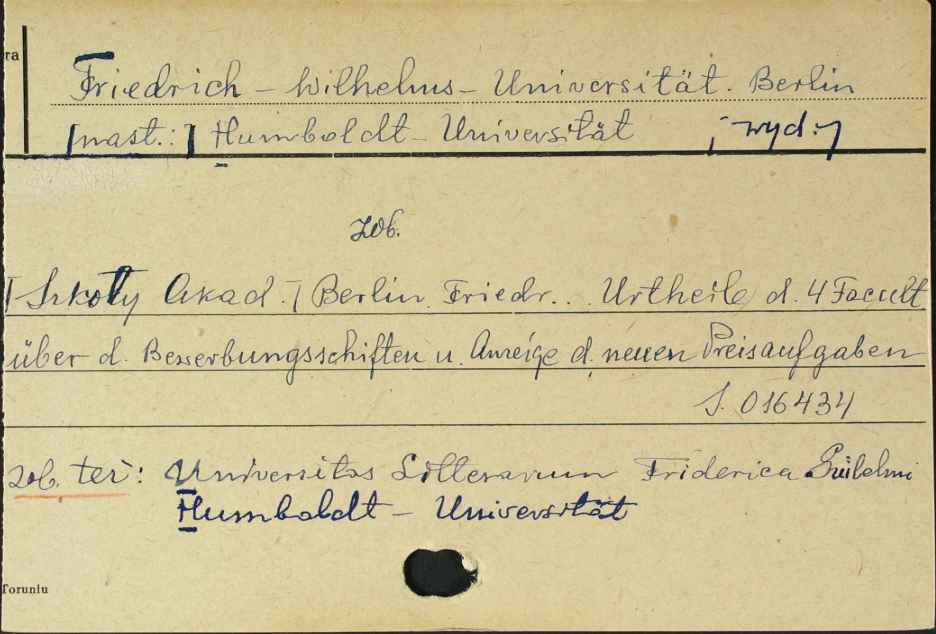 ra
Friedrich - Wilhelms - Universität. Berlin
[nast.:] Humboldt - Universität ; wyd.]
zob.
[Szkoły Akad.] Berlin. Friedr... Urtheile d. 4 Facult
über d. Bewerbungsschiften u. Anzeige d. neuen Preisaufgaben
S. 016434
zob. też: Universitas Litterarum Friderica Guilelmi
Humboldt - Universität
Toruniu